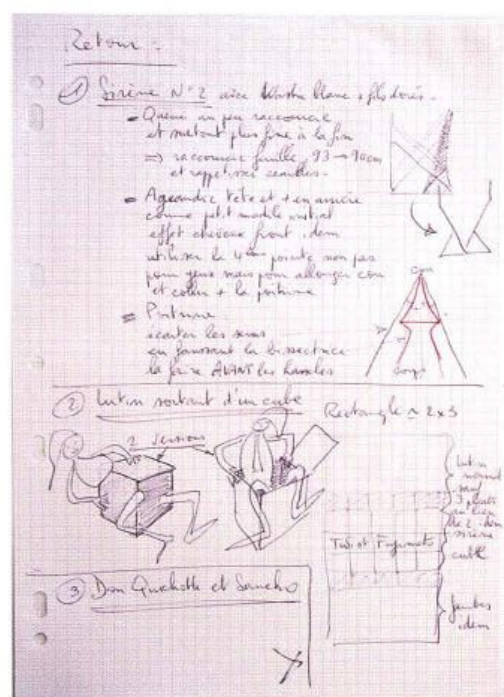 Retour :
① Sirène N°2 avec Washi blanc + fils dorés.
- Queue un peu raccourcie
et surtout plus fine à la fin
⇒ raccourcir feuille, 93 → 90cm
et rappetisser écailles.
- Agrandir tête et + en arrière
comme petit modèle initial
effet cheveux front idem
utiliser la 4ème pointe non pas
pour yeux mais pour allonger cou
et coller + la poitrine
- Poitrine :
écarter les seins
en favorisant la bissectrice
la faire AVANT les
Cou
Corps
② Lutin sortant d'un cube
Rectangle ≃ 2x3
2 versions
lutin
normal
sauf
3 plis
au lieu
de 2 idem
sirène
Twist Fujimoto
cube
jambes
idem
③ Don Quichotte et Sancho